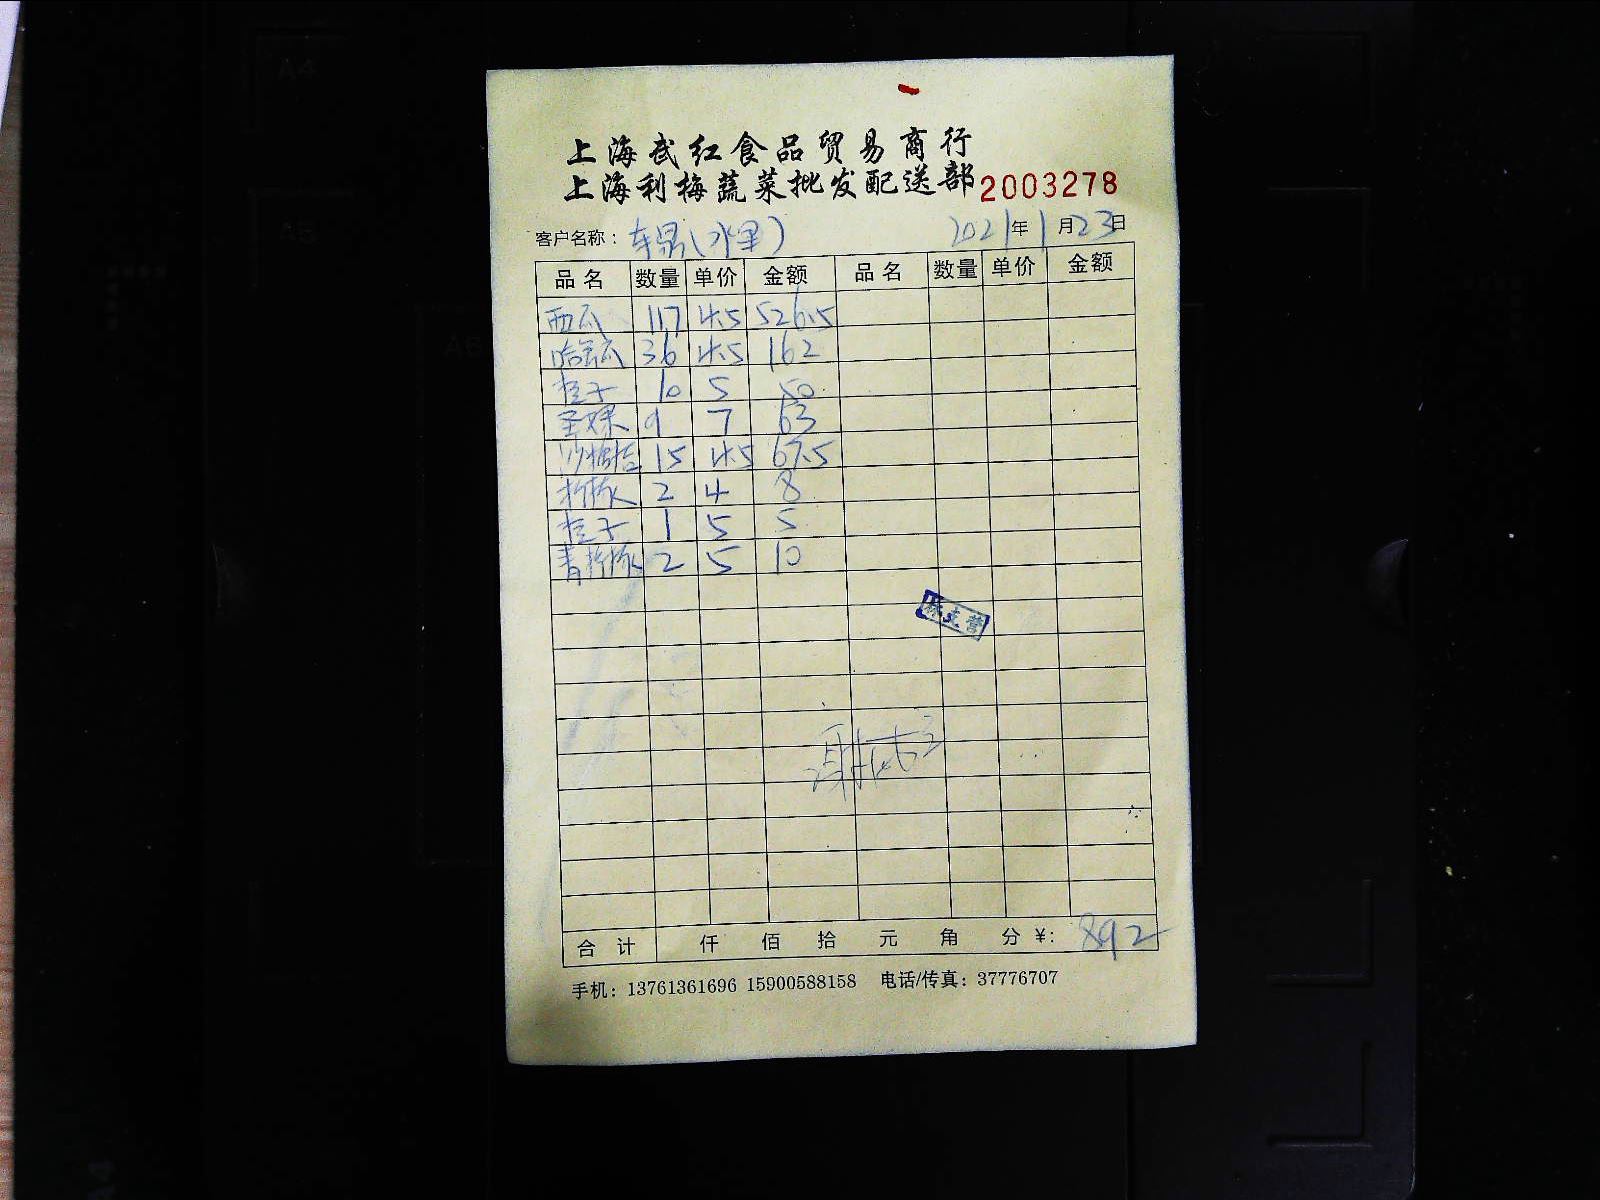 上海武红食品贸易商行
上海利梅蔬菜批发配送部 2003278
客户名称： 东鼎(水果) 2021年1月23日
品名 数量 单价 金额 品名 数量 单价 金额
西瓜 117 4.5 526.5
哈密瓜 36 4.5 162
橙子 10 5 50
圣女果 9 7 63
沙糖桔 15 4.5 67.5
柠檬 2 4 8
橙子 1 5 5
青柠檬 2 5 10
合计 仟 佰 拾 元 角 分 ¥: 892
手机：13761361696 15900588158 电话/传真：37776707
A4
A5